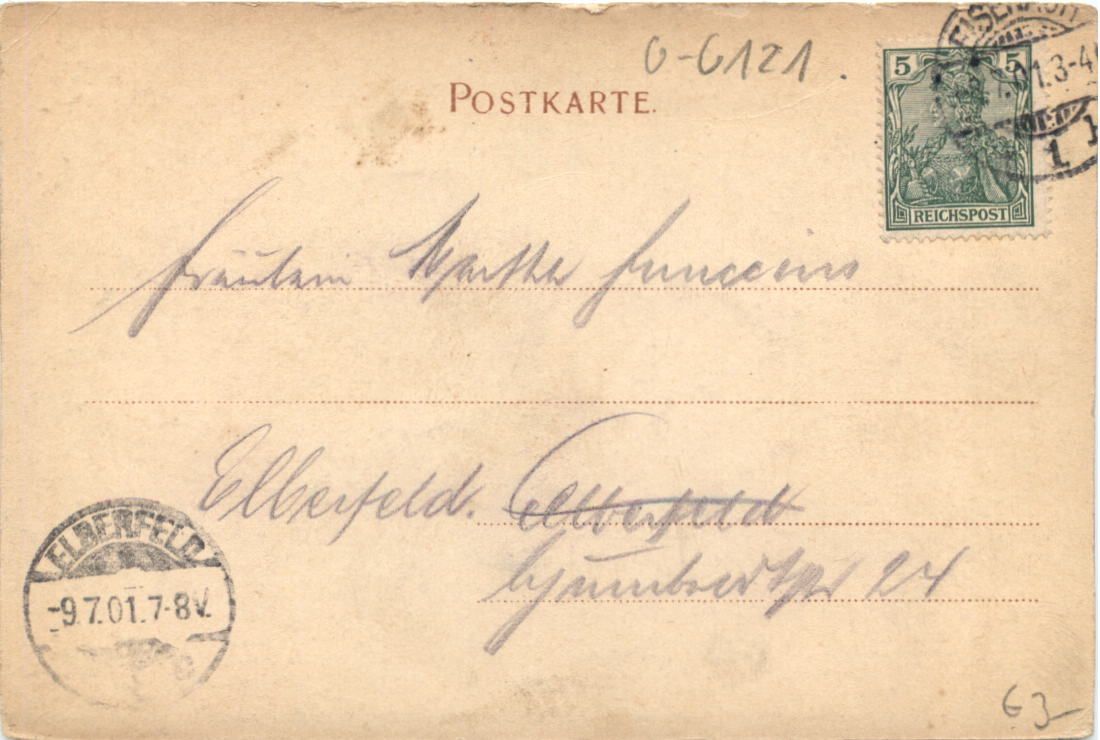 O-6121
POSTKARTE.
5 5
EISENACH
7.01.3-4
1
REICHSPOST
Fräulein Martha
Elberfeld. Elberfeld
24
ELBERFELD
-9.7.01.7-8V.
63-